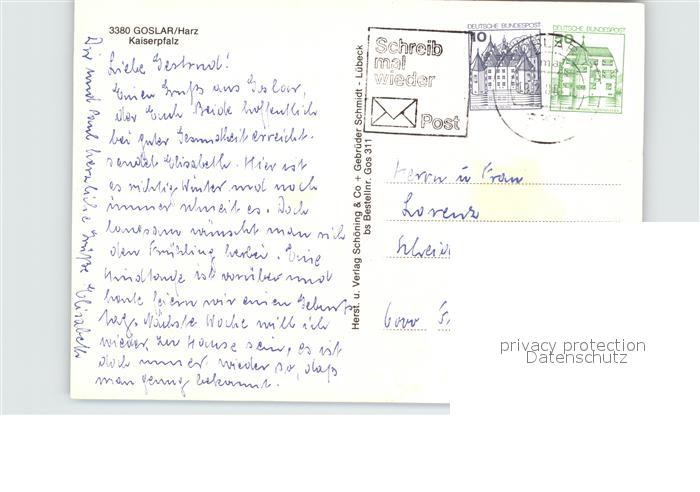 3380 GOSLAR/Harz
Kaiserpfalz
Liebe Gertrud!
Einen Gruß aus Goslar,
der Euch Beide hoffentlich
bei guter Gesundheit erreicht.
sendet Elisabeth. Hier ist
es richtig Winter und noch
immer schneit es. Doch
langsam wünscht man sich
den Frühling herbei. Eine
ist vorüber und
heute feiern wir einen Geburts
tag. Nächste Woche will ich
wieder zu Hause sein, es ist
doch immer wieder so, daß
man genug bekommt.
Dir und Paul herzliche Grüße Elisabeth
Herst. u. Verlag Schöning & Co + Gebrüder Schmidt · Lübeck
bs Bestellnr. Gos 311
Schreib
mal
wieder
Post
DEUTSCHE BUNDESPOST
10
DEUTSCHE BUNDESPOST
Herrn u Frau
Lorenz
6000
privacy protection
Datenschutz